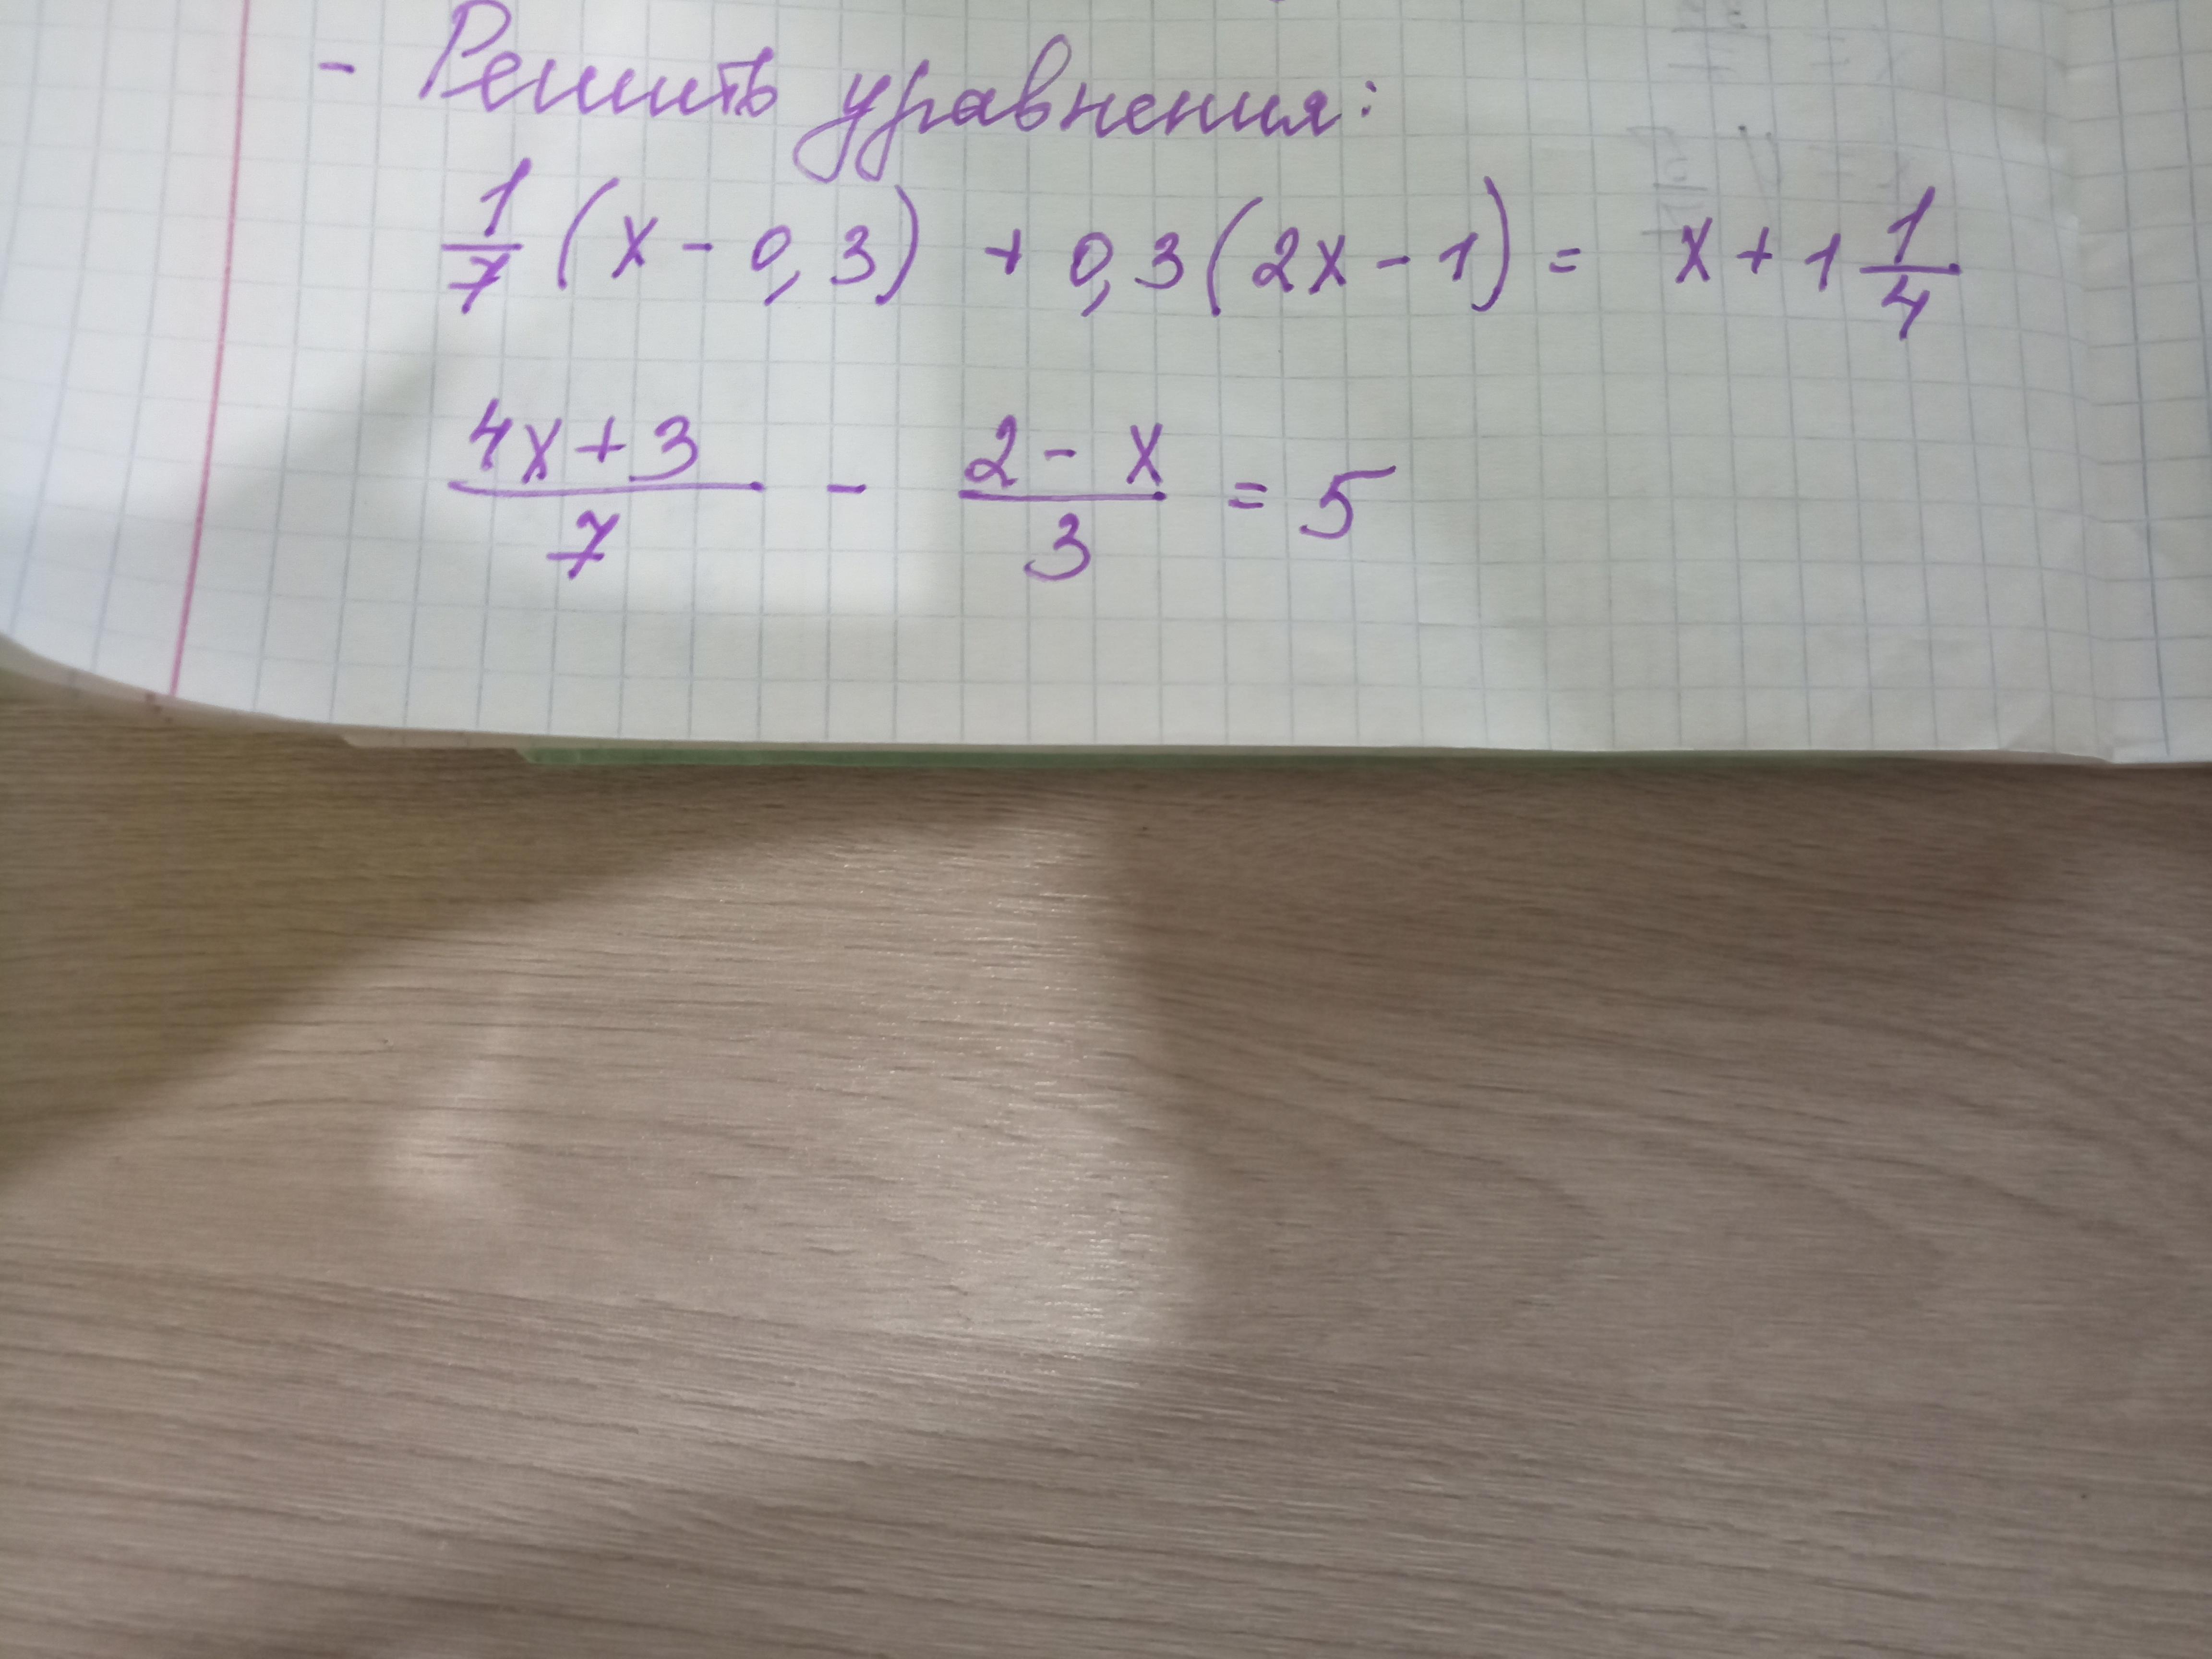 - Решить уравнения:
1/7 (x - 0,3) + 0,3(2x - 1) = x + 1 1/4
4x+3/7 - 2-x/3 = 5